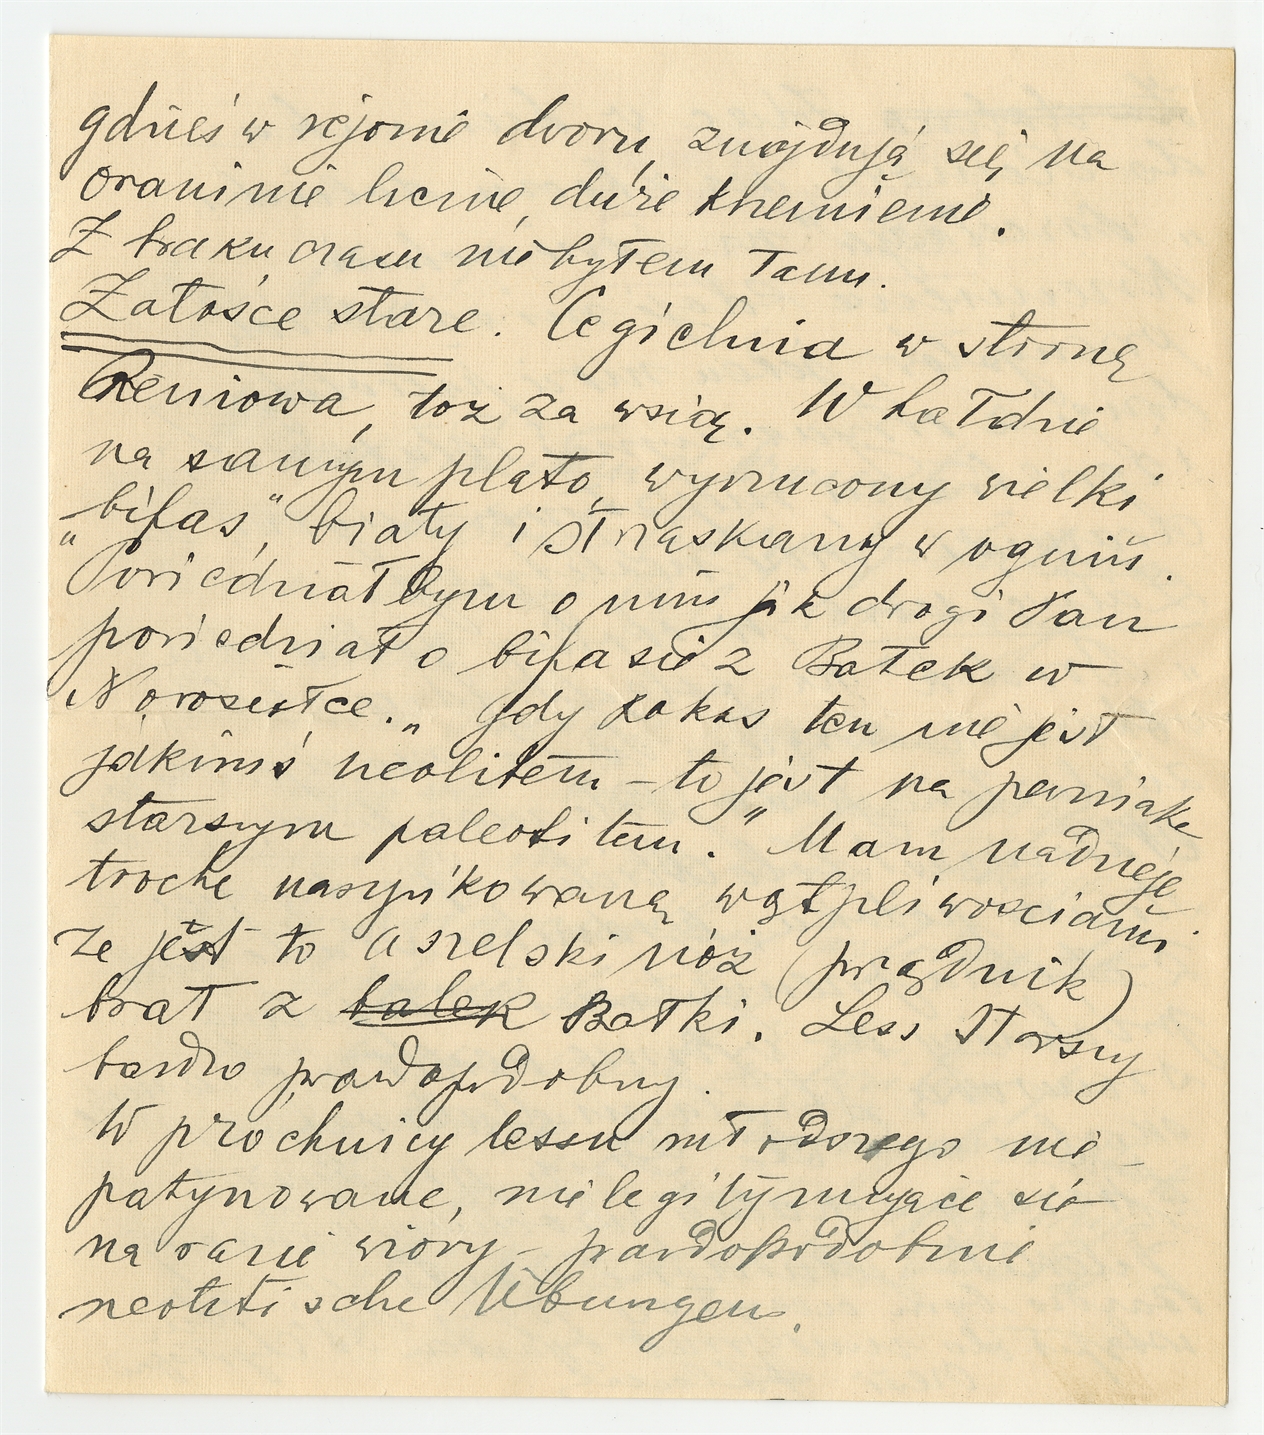 gdzieś w rejonie dworu, znajdują się, na
oraninie liczne, duże krzemienie.
Z braku czasu nie byłem tam.
Załośce stare. Cegielnia w stronę
Reniowa, toż za wsią. W hałdzie
na samym plato, wyrzucony wielki
„bifas”, biały i strzaskany w ogniu.
Powiedziałbym o nim jak drogi Pan
powiedział o bifasie z Bałek w
Nowosiółce. „gdy kokas ten nie jest
jakimś neolitem – to jest na pewniaka
starszym paleolitem.” Mam nadzieję
trochę naszpikowaną wątpliwościami
że jest to aszelski nóż (prądnik)
brat z balek Bałki. Less starszy
bardzo prawdopodobny.
W próchnicy lessu młodszego nie
patynowane, nie legitymujące się
na razie wióry – prawdopodobnie
neolitische Übungen.